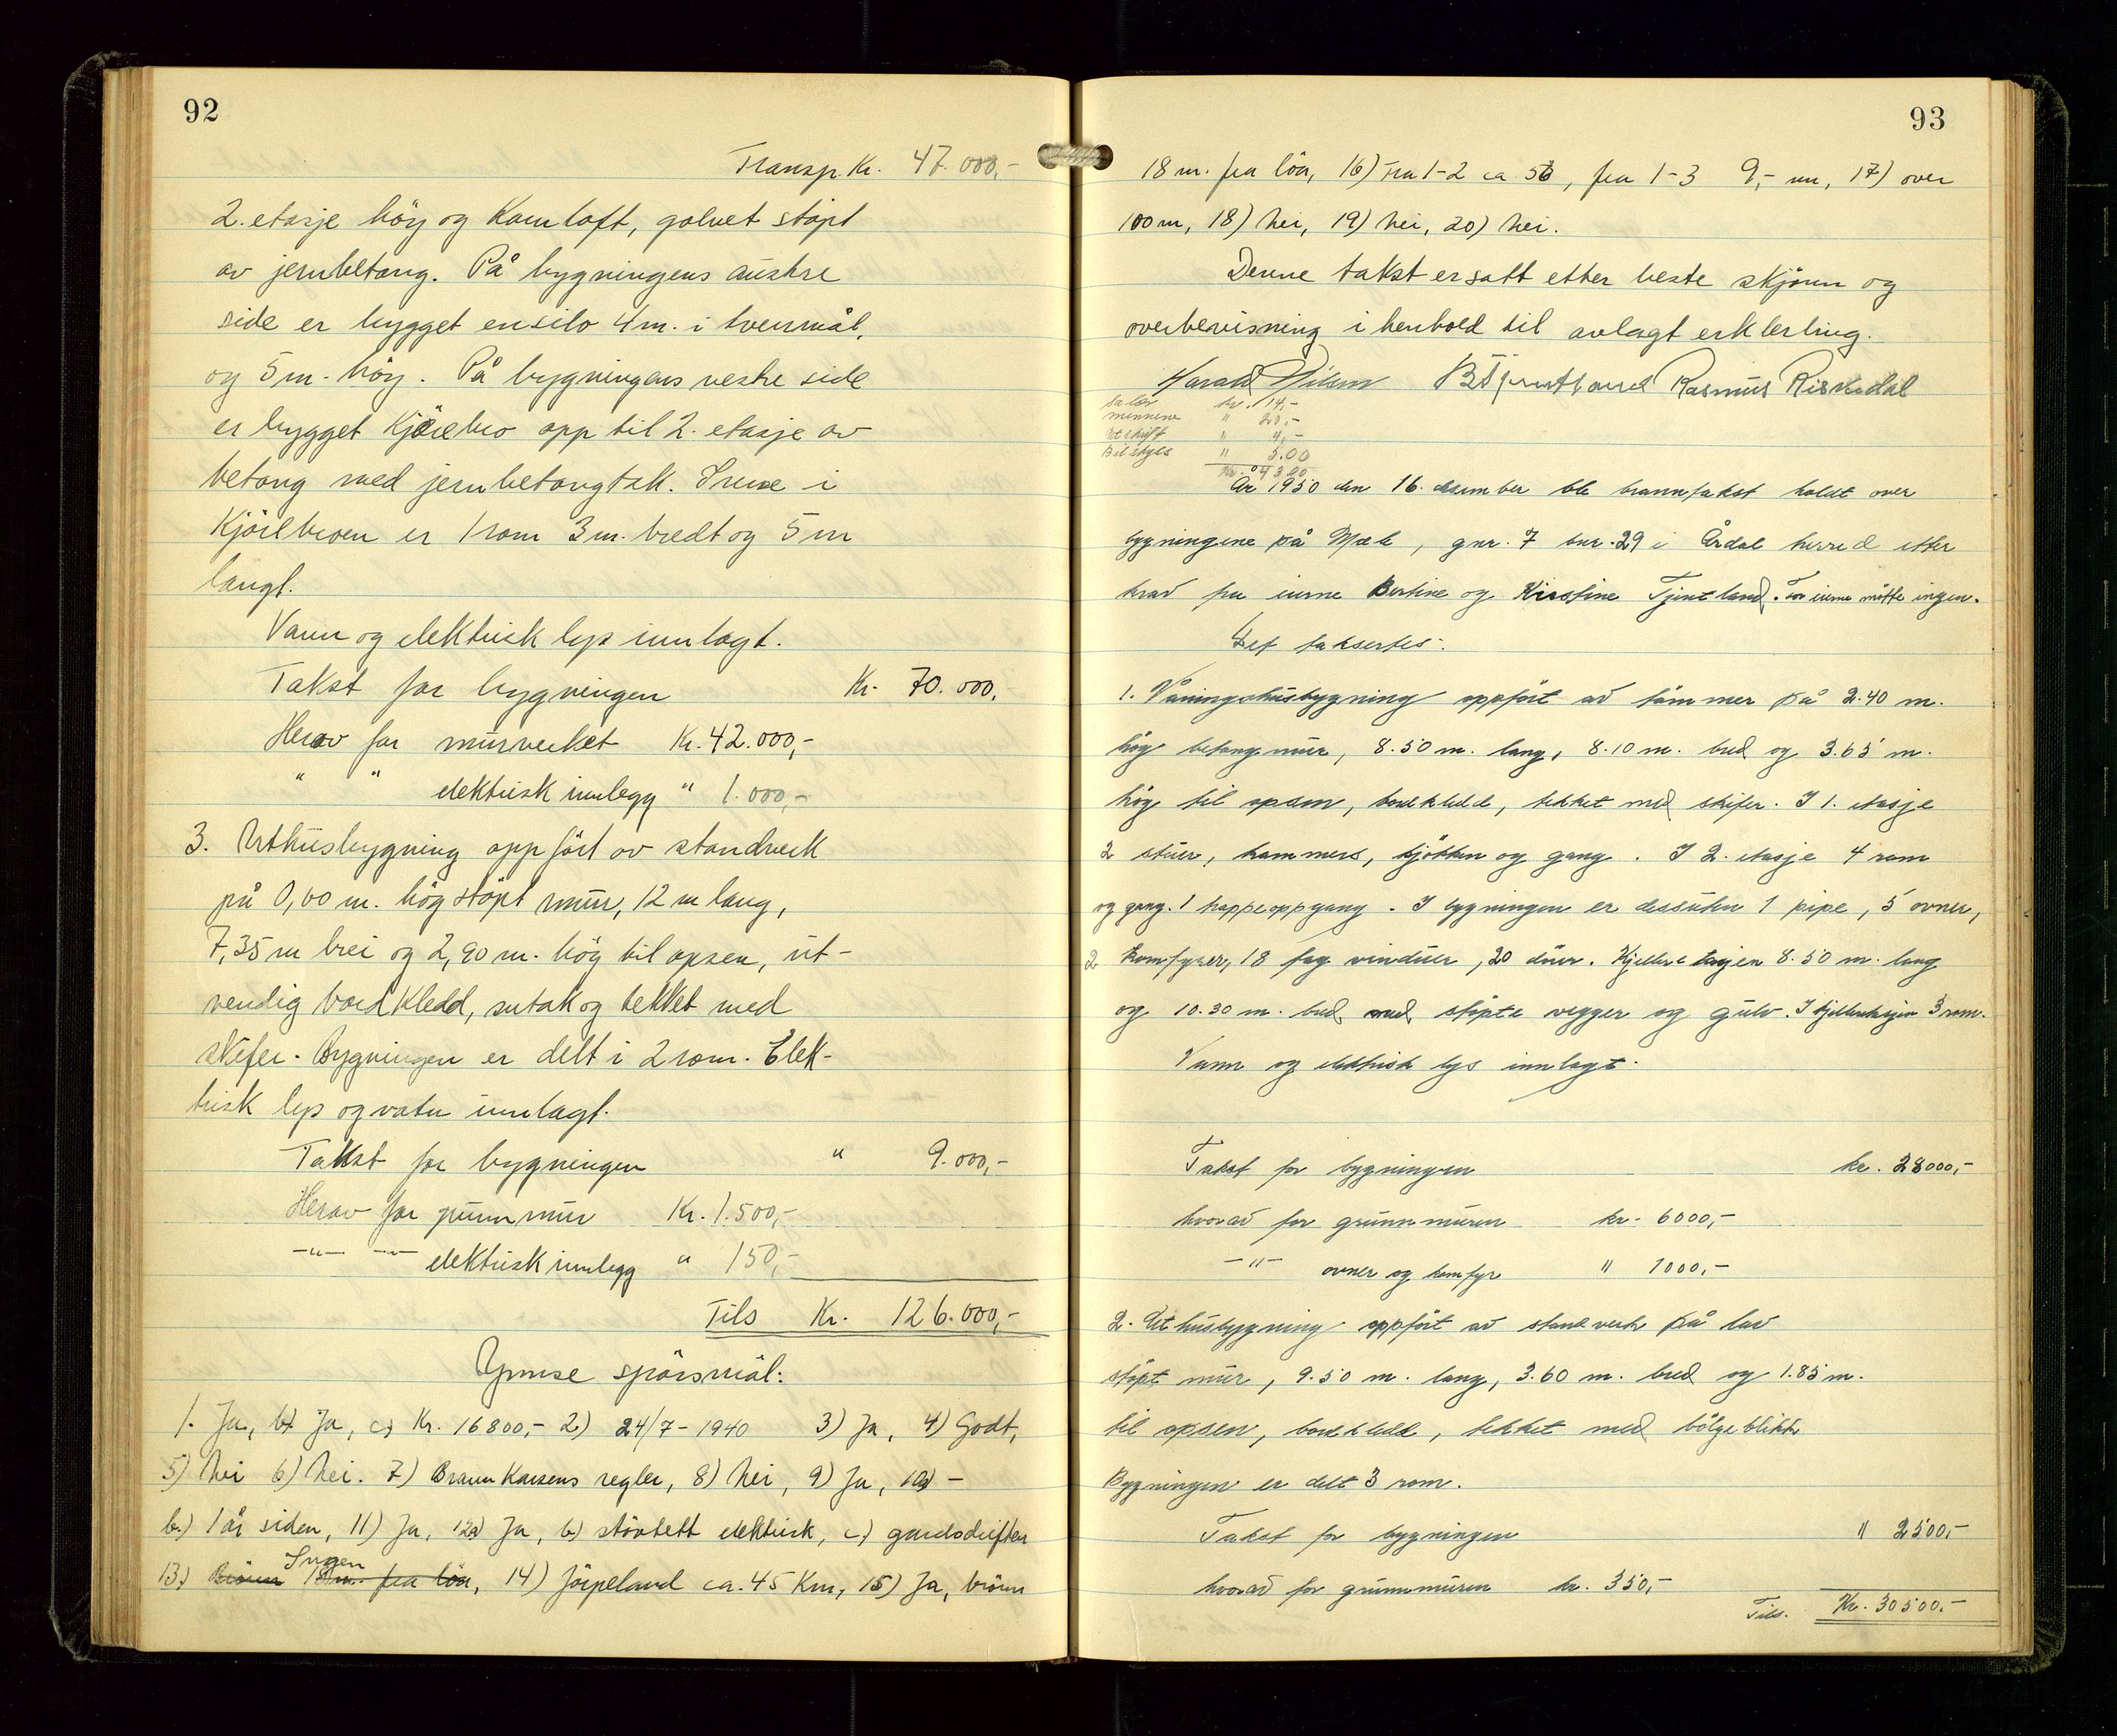 92
Transp. Kr. 47.000,-
2. etasje höy og Kornloft, golvet stöpt
av jernbetong. På bygningens austre
side er bygget en silo 4 m. i tverrmål,
og 5 m. höy. På bygningens vestre side
er bygget Kjörebro opp til 2. etasje av
betong med jernbetongtak. Inne i
Kjörebroen er 1 rom 3 m. bredt og 5 m
langt.
Vann og elektrisk lys innlagt.
Takst for bygningen Kr. 70.000,
Herav for murverket Kr. 42.000,-
" " elektrisk innlegg " 1.000,-
3. Uthusbygning oppfört av standverk
på 0,60 m. hög stöpt mur, 12 m lang,
7,35 m brei og 2,90 m. hög til opsen, ut-
vendig bordkledd, sutak og tekket med
skifer. Bygningen er delt i 2 rom. Elek-
trisk lys og vatn innlagt.
Takst for bygningen " 9.000,-
Herav for grunnmur Kr. 1.500,-
-"- -"- elektrisk innlegg " 150,-
Tils Kr. 126.000,-
Ymse spörsmål:
1. Ja, b) Ja, c) Kr. 16800,- 2) 24/7-1940 3) Ja, 4) Godt,
5) Nei 6) Nei. 7) Brannkassens regler, 8) Nei, 9) Ja, 10a) -
b.) 1 år siden, 11) Ja, 12a) Ja, b) stövtett elektrisk, c.) gardsdriften
Ingen
13.) Brönn 18 m. fra löa, 14) Jörpeland ca. 45 Km, 15) Ja, brönn
93
18 m. fra löa, 16) Fra 1-2 ca 53, fra 1-3 9,- m, 17) over
100 m, 18) Nei, 19) Nei, 20) Nei.
Denne takst er satt etter beste skjönn og
overbevisning i henhold til avlagt erklering.
Harald Nilsen Rasmus Riskedal
Salær kr. 14,-
" 20,-
Utskrift " 4,-
Bilskyss " 5.00
Kr. 43.00
År 1950 den 16. desember ble branntakst holdt over
bygningene på Mæle, gnr. 7 bnr. 29 i Årdal herred etter
krav fra eierne Bertine og Kirstine Tjentland. For eierne mötte ingen.
Det taksertes:
1. Våningshusbygning oppfört av tömmer på 2.40 m.
hög betongmur, 8.50 m. lang, 8.10 m. bred og 3.65 m.
hög til opsen, bordkledd, tekket med skifer. I 1. etasje
2 stuer, kammers, kjökken og gang. I 2. etasje 4 rom
og gang. 1 trappeoppgang. I bygningen er dessuten 1 pipe, 5 ovner,
2 komfyrer, 18 fag vinduer, 20 dörer. Kjelleretasjen 8.50 m. lang
og 10.30 m. bred med stöpte vegger og gulv. I kjelleretasjen 3 rom.
Vann og elektrisk lys innlagt.
Takst for bygningen kr. 28000,-
hvorav for grunnmuren kr. 6000,-
-"- ovner og komfyr " 1000,-
2. Uthusbygning oppfört av standverk på lav
stöpt mur, 9.50 m. lang, 3.60 m. bred og 1.85 m.
til opsen, bordkledd, tekket med bölgeblikk.
Bygningen er delt 3 rom.
Takst for bygningen " 2500,-
hvorav for grunnmuren kr. 350,-
Tils. Kr. 30500.-